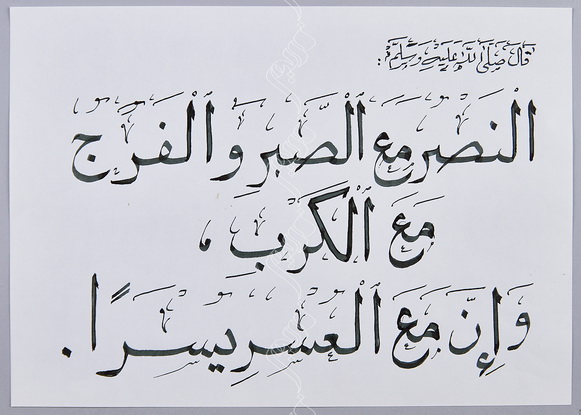 قَالَ صَلَّى اللهُ عَلَيْهِ وَسَلَّمَ :
النَّصْرُ مَعَ الصَّبْرِ وَالْفَرَجُ
مَعَ الْكَرْبِ ،
وَإِنَّ مَعَ الْعُسْرِ يُسْرًا .